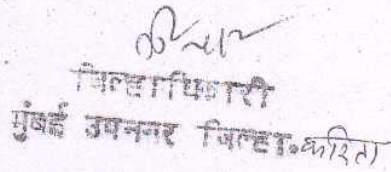 जिल्हाधिकारी
मुंबई उपनगर जिल्हा.करिता